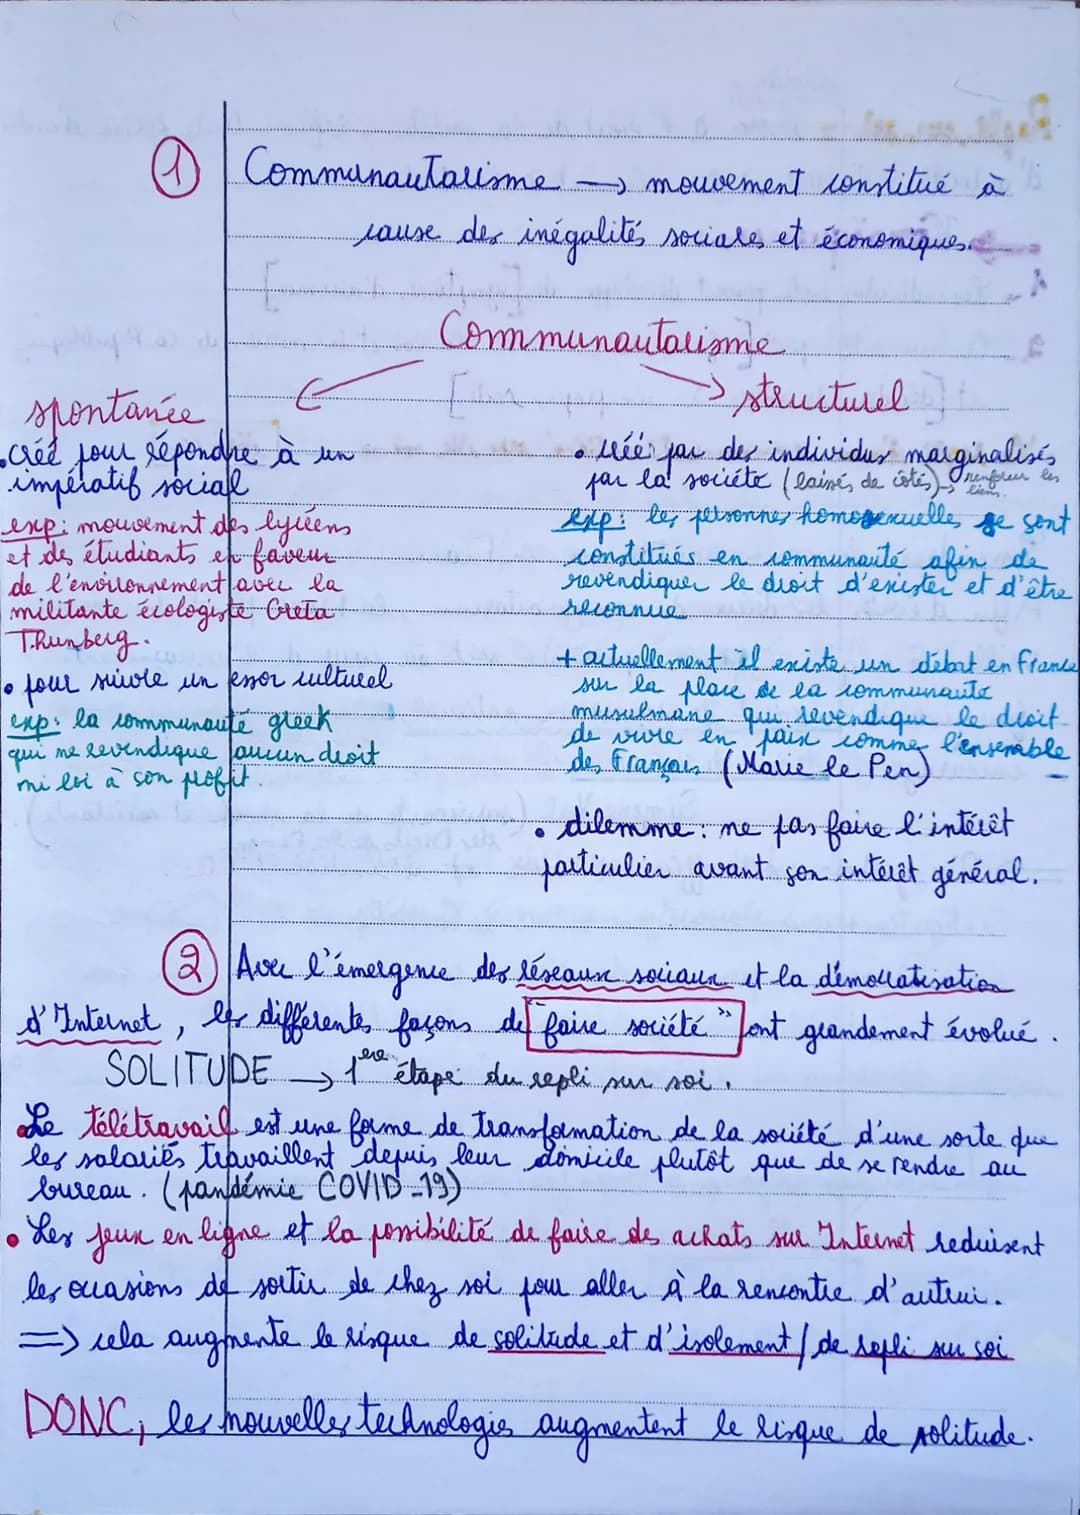 1 Communautarisme → mouvement constitué à
cause des inégalités sociales et économiques.
Communautarisme
spontanée
.créé pour répondre à un
impératif social
exp: mouvement des lycéens
et des étudiants en faveur
de l'environnement avec la
militante écologiste Greta
Thunberg.
• pour suivre un essor culturel
exp: la communauté greek
qui ne revendique aucun droit
ni loi à son profit.
structurel
• créé par des individus marginalisés
par la société (laissés de côtés) → renforcer les
liens.
exp: les personnes homosexuelles se sont
constitués en communauté afin de
revendiquer le droit d'exister et d'être
reconnue
+ actuellement il existe un débat en France
sur la place de la communauté
musulmane qui revendique le droit
de vivre en paix comme l'ensemble
des Français (Marie le Pen)
• dilemme: ne pas faire l'intérêt
particulier avant son intérêt général.
2 Avec l'émergence des réseaux sociaux et la démocratisation
d'Internet, les différentes façons de "faire société" ont grandement évolué.
SOLITUDE → 1ère étape du repli sur soi.
• Le télétravail est une forme de transformation de la société d'une sorte que
les salariés travaillent depuis leur domicile plutôt que de se rendre au
bureau. (pandémie COVID-19)
• Les jeux en ligne et la possibilité de faire des achats sur Internet reduisent
les occasions de sortir de chez soi pour aller à la rencontre d'autrui.
=> cela augmente le risque de solitude et d'isolement / de repli sur soi
DONC, les nouvelles technologies augmentent le risque de solitude.